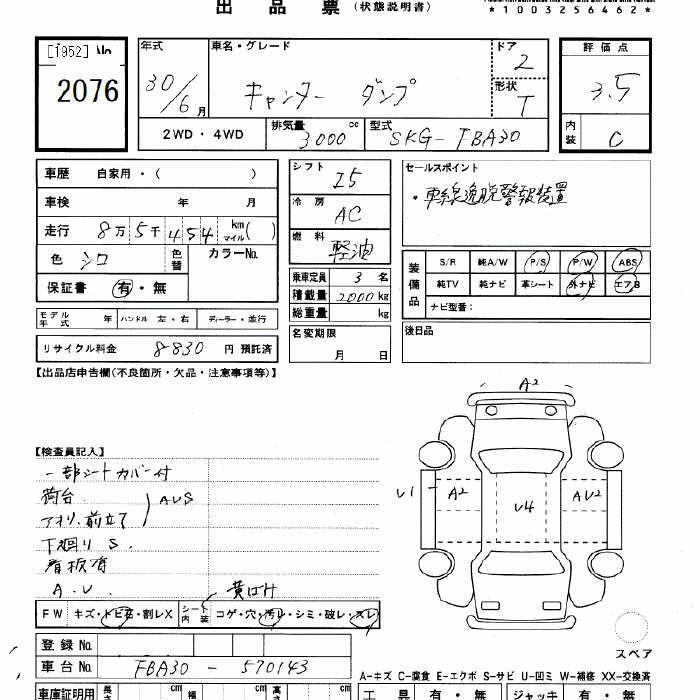 出品票(状態説明書)
*1003256462*
[1952] No
2076
年式
30/6月
車名・グレード
キャンター ダンプ
ドア
2
形状
T
評価点
3.5
内装
C
2WD・4WD
排気量 cc
3000
型式
SKG-FBA30
車歴 自家用・( )
車検 年 月
走行 8万5千454 km マイル( )
色 シロ 色替 カラーNo.
保証書 有・無
シフト
I5
冷房
AC
燃料
軽油
セールスポイント
・車線逸脱警報装置
装備品
S/R 純A/W P/S P/W ABS
純TV 純ナビ 革シート 外ナビ エアB
ナビ型番:
乗車定員 3 名
積載量 2000kg
総重量 kg
モデル年式 年 ハンドル 左・右 ディーラー・並行
名変期限
月 日
後日品
リサイクル料金 8830 円 預託済
【出品店申告欄(不良箇所・欠品・注意事項等)】
【検査員記入】
一部シートカバー付
荷台
アオリ、前立て
AUS
下廻り S.
看板有
A.U.
黄ばみ
A2
U1
A2
U4
AU2
FW キズ・トビ石・割レX シート内装 コゲ・穴・汚レ・シミ・破レ・スレ
スペア
登録No.
車台No. FBA30-570143
A-キズ C-腐食 E-エクボ S-サビ U-凹ミ W-補修 XX-交換済
車庫証明用 長さ cm 幅 cm 高さ cm
工具 有・無 ジャッキ 有・無